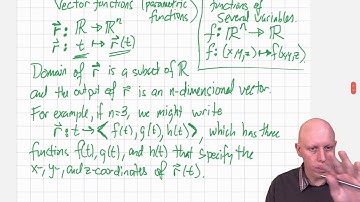 Vector functions (parametric functions)
r⃗: ℝ → ℝⁿ
r⃗: t ↦ r⃗(t)
functions of
several variables.
f: ℝⁿ → ℝ
f: (x,y,z) ↦ f(x,y,z)
Domain of r⃗ is a subset of ℝ
and the output of r⃗ is an n-dimensional vector.
For example, if n=3, we might write
r⃗: t → ⟨f(t), g(t), h(t)⟩, which has three
functions f(t), g(t), and h(t) that specify the
x-, y-, and z-coordinates of r⃗(t).